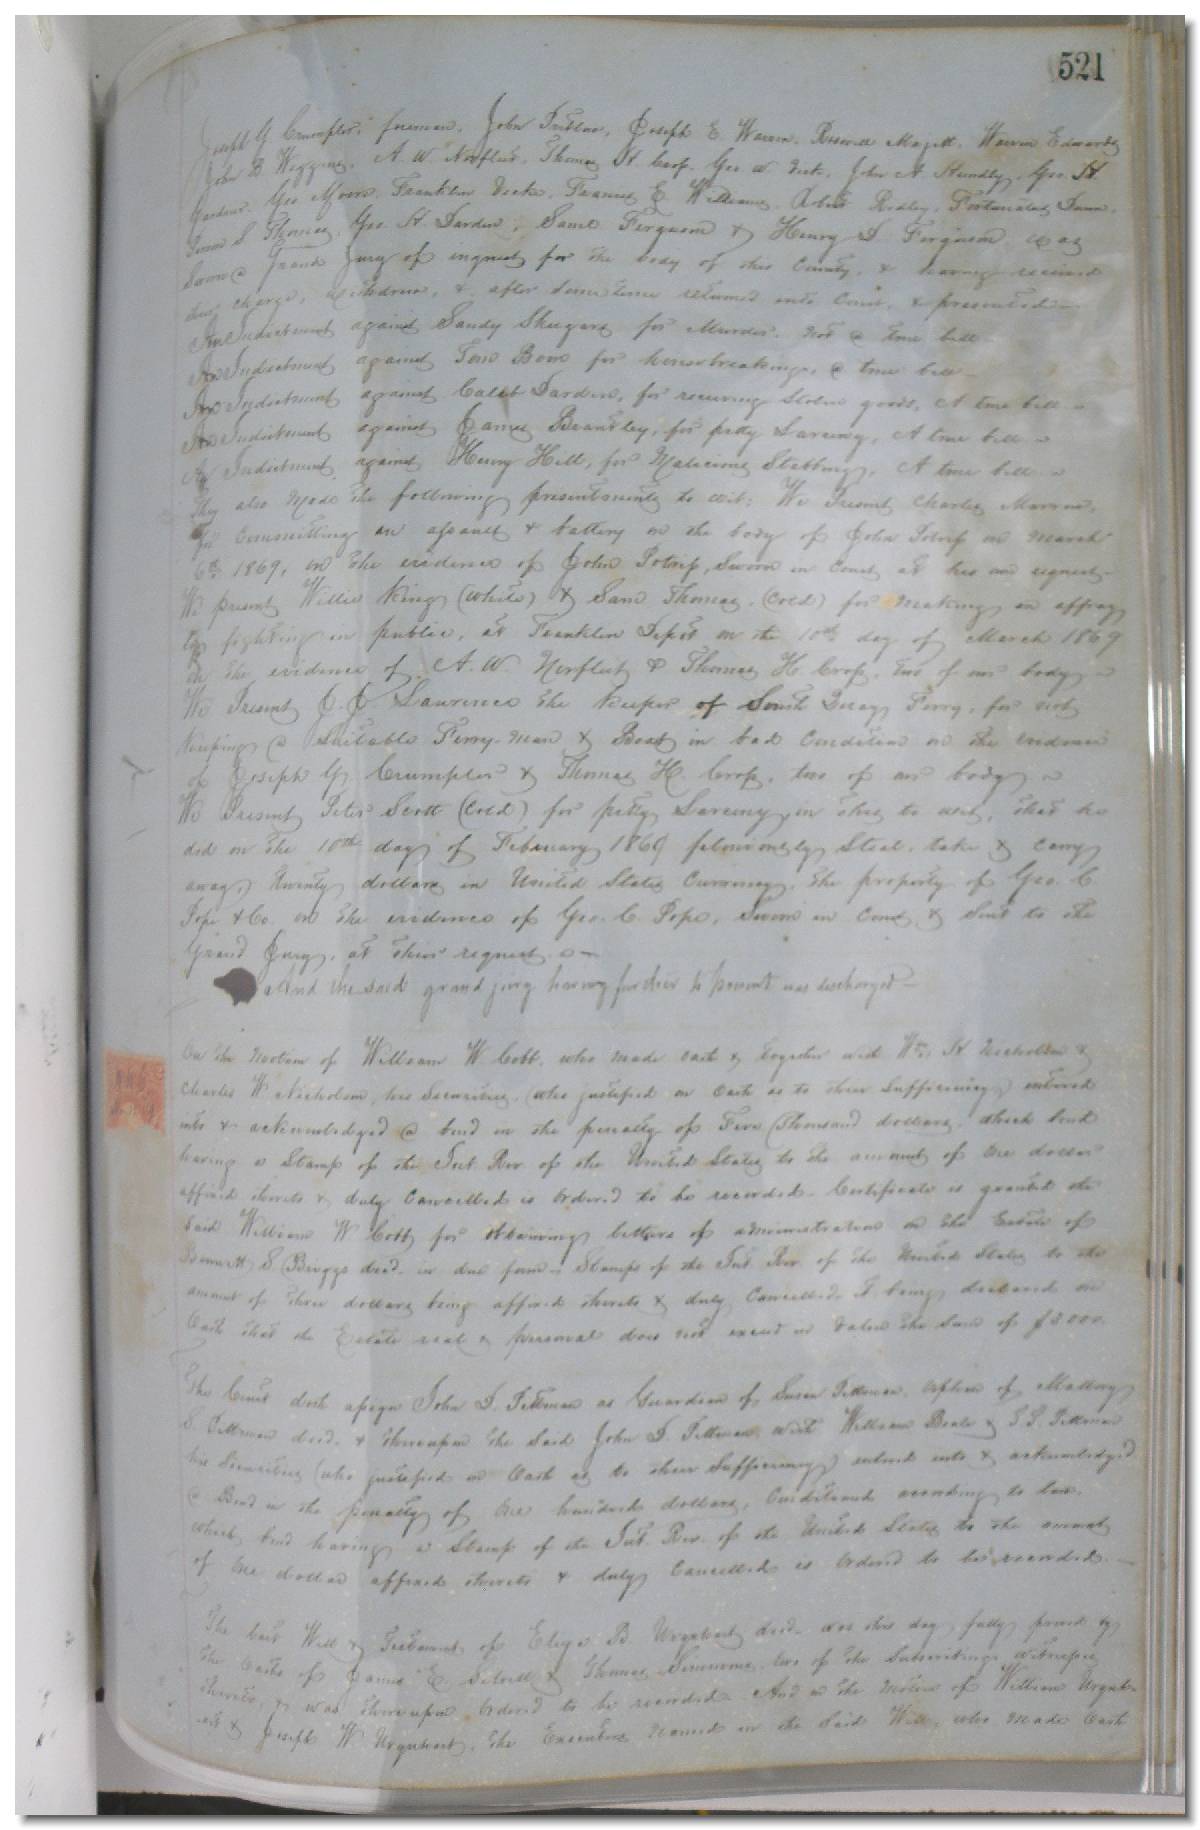 521
Joseph G. Crumpler, foreman, John Pretlow, Joseph E. Warren, Roswell Majett, Warren Edwards
John B. Wiggins, A. W. Norfleet, Thomas H. Crop, Geo W. Vick, John A. Hundley, Geo. H.
Gardner, Geo Myers, Franklin Vick, Francis E. Williams, Robert Ridley, Fortunatus
S. Thomas, Geo. H. Darden, Saml Ferguson & Henry D. Ferguson was
Sworn a Grand Jury of inquest for the body of this County, & having received
their charge, withdrew, & after sometime returned into Court, & presented—
An Indictment against Sandy for Murder. not a true bill—
An Indictment against Tom Boon for housebreaking, a true bill—
An Indictment against Caleb Darden, for receiving Stolen goods, A true bill—
An Indictment against James Brantley, for petty Larceny, A true bill—
An Indictment against Henry Hill, for Malicious Stabbing, A true bill—
They also made the following presentments to wit: We Present Charles
for Committing an assault & battery on the body of John on March
6th 1869, on the evidence of John, Sworn in Court at his own request—
We present Willie King (White) & Sam Thomas (Cold) for making an affray
by fighting in public, at Franklin Depot on the 10th day of March 1869
on the evidence of A. W. Norfleet & Thomas H. Crop, two of our body—
We Present J. J. Lawrence the Keeper of South Quay Ferry, for not
Keeping a Suitable Ferry-man & Boat in bad Condition on the evidence
of Joseph G. Crumpler & Thomas H. Crop, two of our body—
We Present Peter Scott (Cold) for petty Larceny, in this to wit, that he
did on the 10th day of February 1869 feloniously Steal, take & carry
away, twenty dollars in United States Currency, the property of Geo. C.
Pope & Co. on the evidence of Geo. C. Pope, Sworn in Court & Sent to the
Grand Jury, at their request—
And the said grand jury having further to present was discharged—
On the motion of William W. Cobb, who made oath & together with Wm. H. Nicholson &
Charles W. Nicholson, his Securities, (who justified on Oath as to their Sufficiency) entered
into & acknowledged a bond in the penalty of Five Thousand dollars, which bond
having a Stamp of the Int. Rev. of the United States to the amount of one dollar
affixed thereto & duly Cancelled is Ordered to be recorded. Certificate is granted the
Said William W. Cobb, for obtaining letters of administration on the Estate of
Bennett S. Briggs decd. in due form. Stamps of the Int. Rev. of the United States to the
amount of three dollars being affixed thereto & duly Cancelled. It being declared on
Oath that the Estate real & personal does not exceed in value the Sum of $3000.
The Court doth assign John D. Pittman as Guardian of Susan Pittman, orphan of Mallory
S. Pittman decd. & thereupon the Said John D. Pittman with William Beale & Pittman
his Securities (who justified on Oath as to their Sufficiency) entered into & acknowledged
a Bond in the penalty of One hundred dollars, Conditioned according to law.
which bond having a Stamp of the Int. Rev. of the United States to the amount
of One dollar affixed thereto & duly Cancelled is Ordered to be recorded.—
The last Will & Testament of B. Urquhart decd. was this day fully proved by
the Oaths of James E. & Thomas Simmons, two of the Subscribing witnesses
thereto, & was thereupon Ordered to be recorded. And on the Motion of William Urquh-
art & Joseph W. Urquhart, the Executors named in the Said Will, who made Oath